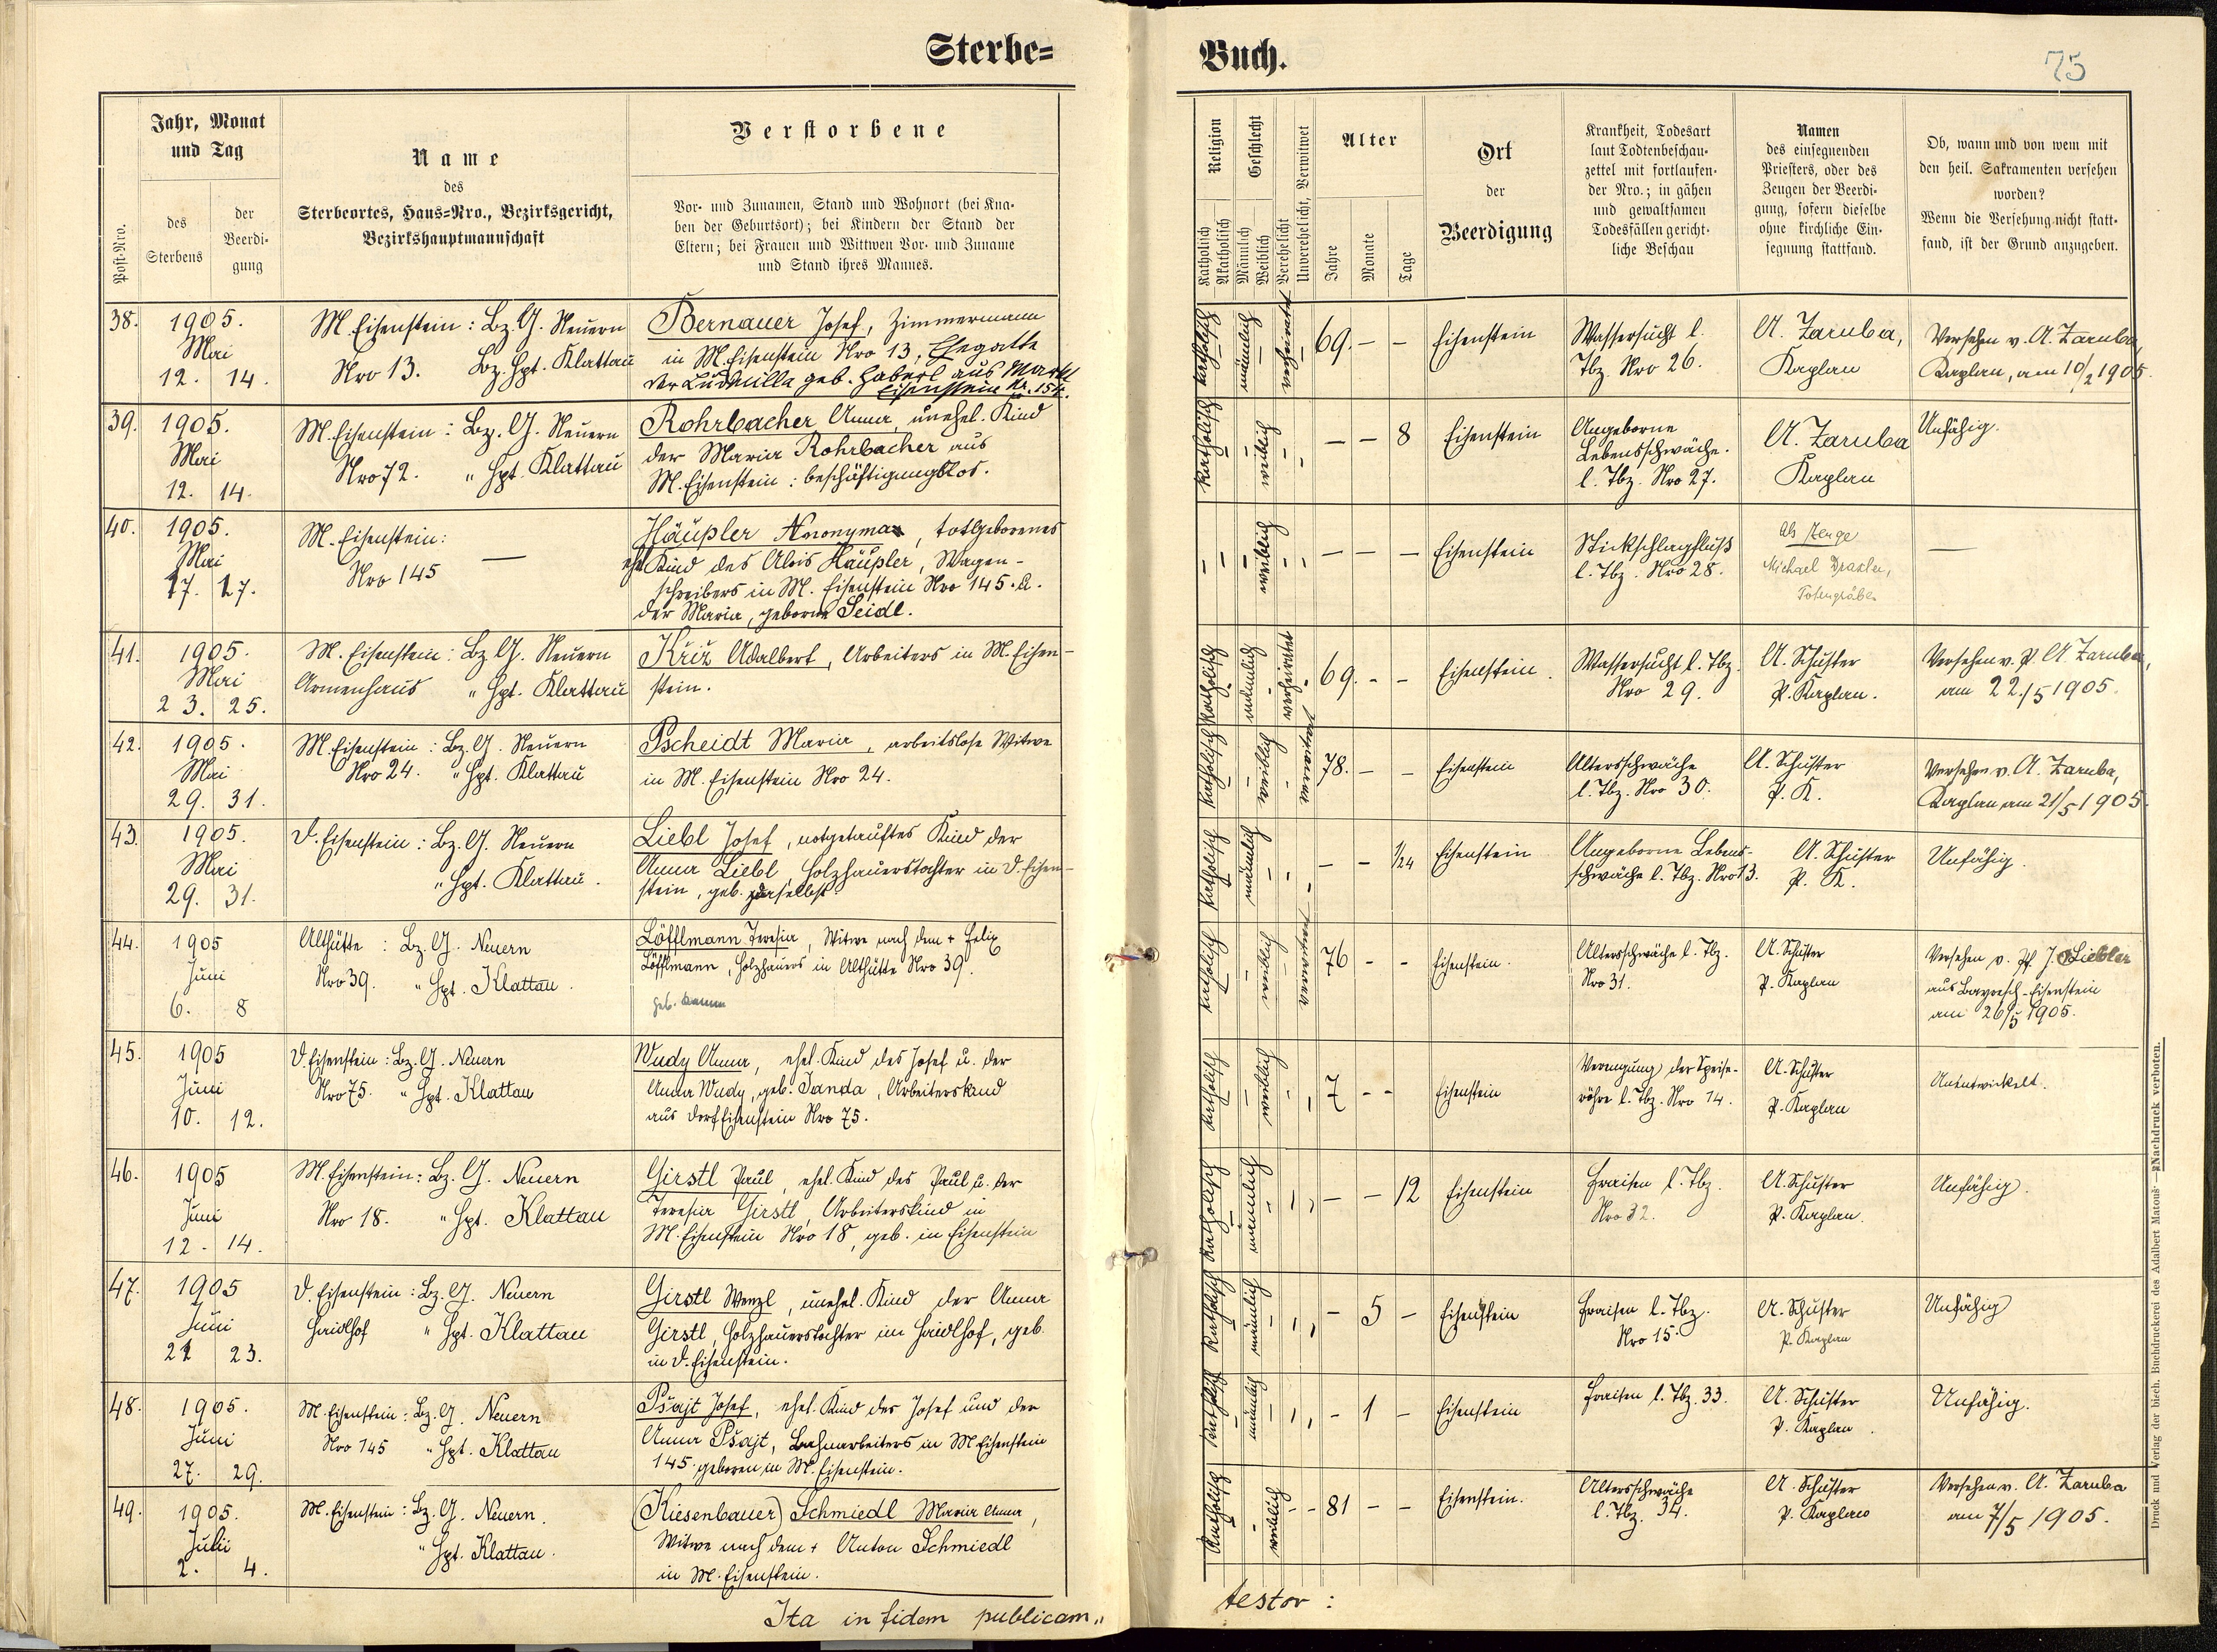 Sterbe=
Buch.
75
Jahr, Monat
und Tag
Post-Nro.
des
Sterbens
der
Beerdi-
gung
Name
des
Sterbeortes, Haus=Nro., Bezirksgericht,
Bezirkshauptmannschaft
Verstorbene
Vor- und Zunamen, Stand und Wohnort (bei Kna-
ben der Geburtsort); bei Kindern der Stand der
Eltern; bei Frauen und Wittwen Vor- und Zuname
und Stand ihres Mannes.
Religion
Katholisch
Akatholisch
Geschlecht
Männlich
Weiblich
Verehelicht
Unverehelicht, Verwitwet
Alter
Jahre
Monate
Tage
Ort
der
Beerdigung
Krankheit, Todesart
laut Todtenbeschau-
zettel mit fortlaufen-
der Nro.; in gähen
und gewaltsamen
Todesfällen gericht-
liche Beschau
Namen
des einsegnenden
Priesters, oder des
Zeugen der Beerdi-
gung, sofern dieselbe
ohne kirchliche Ein-
segnung stattfand.
Ob, wann und von wem mit
den heil. Sakramenten versehen
worden?
Wenn die Versehung nicht statt-
fand, ist der Grund anzugeben.
38. 1905. Mai 12. 14.
M. Eisenstein: Bz. G. Neuern
Nro 13. Bz. Hpt. Klattau
Bernauer Josef, Zimmermann
in M. Eisenstein Nro 13, Ehegatte
der Ludmilla geb. Haberl aus Markt
Eisenstein Nr. 154.
katholisch männlich verheiratet 69. - - Eisenstein
Wassersucht l.
Tbz. Nro 26.
A. Zaruba,
Kaplan
Versehen v. A. Zaruba,
Kaplan, am 10/2 1905.
39. 1905. Mai 12. 14.
M. Eisenstein: Bz. G. Neuern
Nro 72. " Hpt. Klattau
Rohrbacher Anna, unehel. Kind
der Maria Rohrbacher aus
M. Eisenstein: beschäftigungslos.
katholisch weiblich - - 8 Eisenstein
Angeborne
Lebensschwäche.
l. Tbz. Nro 27.
A. Zaruba
Kaplan
Unfähig.
40. 1905. Mai 17. 17.
M. Eisenstein:
Nro 145 —
Häußler Anonyma, totgeborenes
ehl Kind des Alois Häußler, Wagen-
schreibers in M. Eisenstein Nro 145. u.
der Maria, geborne Seidl.
weiblich - - - Eisenstein
Stickschlagfluß
l. Tbz. Nro 28.
Als Zeuge
Michael Draxler,
Totengräber
—
41. 1905. Mai 23. 25.
M. Eisenstein: Bz. G. Neuern
Armenhaus " Hpt. Klattau
Křiž Adalbert, Arbeiters in M. Eisen-
stein.
katholisch männlich verheiratet 69. - - Eisenstein.
Wassersucht l. Tbz.
Nro 29.
A. Schuster
P. Kaplan.
Versehen v. P. A. Zaruba,
am 22./5 1905.
42. 1905. Mai 29. 31.
M. Eisenstein: Bz. G. Neuern
Nro 24. " Hpt. Klattau
Pscheidt Maria, arbeitslose Witwe
in M. Eisenstein Nro 24.
katholisch weiblich verwitwet 78. - - Eisenstein
Altersschwäche
l. Tbz. Nro 30.
A. Schuster
P. K.
Versehen v. A. Zaruba,
Kaplan am 21/5 1905.
43. 1905. Mai 29. 31.
D. Eisenstein: Bz. G. Neuern
" Hpt. Klattau.
Liebl Josef, notgetauftes Kind der
Anna Liebl, Holzhauerstochter in D. Eisen-
stein, geb. daselbst.
katholisch männlich - - 1/24 Eisenstein
Angeborne Lebens-
schwäche l. Tbz. Nro 13.
A. Schuster
P. K.
Unfähig.
44. 1905 Juni 6. 8
Althütte: Bz. G. Neuern
Nro 39. " Hpt. Klattau.
Löfflmann Teresia, Witwe nach dem + Felix
Löfflmann, Holzhauers in Althütte Nro 39.
geb.
katholisch weiblich verwitwet 76 - - Eisenstein.
Altersschwäche l. Tbz.
Nro 31.
A. Schuster
P. Kaplan
Versehen v. Pf. J. Liebler
aus Bayrisch-Eisenstein
am 26/5 1905.
45. 1905 Juni 10. 12.
D. Eisenstein: Bz. G. Neuern
Nro 75. " Hpt. Klattau
Wudy Anna, ehel. Kind des Josef u. der
Anna Wudy, geb. Janda, Arbeiterskind
aus Dorf Eisenstein Nro 75.
katholisch weiblich 7 - - Eisenstein
Verengung der Speise-
röhre l. Tbz. Nro 14.
A. Schuster
P. Kaplan
Unentwickelt.
46. 1905 Juni 12. 14.
M. Eisenstein: Bz. G. Neuern
Nro 18. " Hpt. Klattau
Girstl Paul, ehel. Kind des Paul u. der
Teresia Girstl, Arbeiterskind in
M. Eisenstein Nro 18, geb. in Eisenstein
katholisch männlich - - 12 Eisenstein
Fraisen l. Tbz.
Nro 32.
A. Schuster
P. Kaplan.
Unfähig.
47. 1905 Juni 21 23.
D. Eisenstein: Bz. G. Neuern
Haidlhof " Hpt. Klattau
Girstl Wenzl, unehel. Kind der Anna
Girstl, Holzhauerstochter im Haidlhof, geb.
in D. Eisenstein.
katholisch männlich - 5 - Eisenstein
Fraisen l. Tbz.
Nro 15.
A. Schuster
P. Kaplan
Unfähig
48. 1905. Juni 27. 29.
M. Eisenstein: Bz. G. Neuern
Nro 145 " Hpt. Klattau
Pšajt Josef, ehel. Kind des Josef und der
Anna Pšajt, Bahnarbeiters in M Eisenstein
145. geboren in M. Eisenstein.
katholisch männlich - 1 - Eisenstein
Fraisen l. Tbz. 33.
A. Schuster
P. Kaplan.
Unfähig.
49. 1905. Juli 2. 4.
M. Eisenstein: Bz. G. Neuern.
" Hpt. Klattau.
(Kiesenbauer) Schmiedl Maria Anna,
Witwe nach dem + Anton Schmiedl
in M. Eisenstein.
katholisch weiblich 81 - - Eisenstein.
Altersschwäche
l. Tbz. 34.
A. Schuster
P. Kaplan
Versehen v. A. Zaruba
am 7/5 1905.
Ita in fidem publicam„
testor:
Druck und Verlag der bisch. Buchdruckerei des Adalbert Matouš. — Nachdruck verboten.